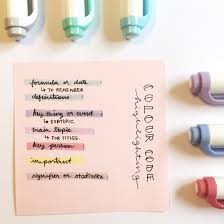 formula or date
↳ TO REMEMBER
definitions
key thing or event
↳ SUBTOPIC
main topic
↳ FOR TITLES
key person
important
signifier or statistics
COLOUR CODE
highlighting